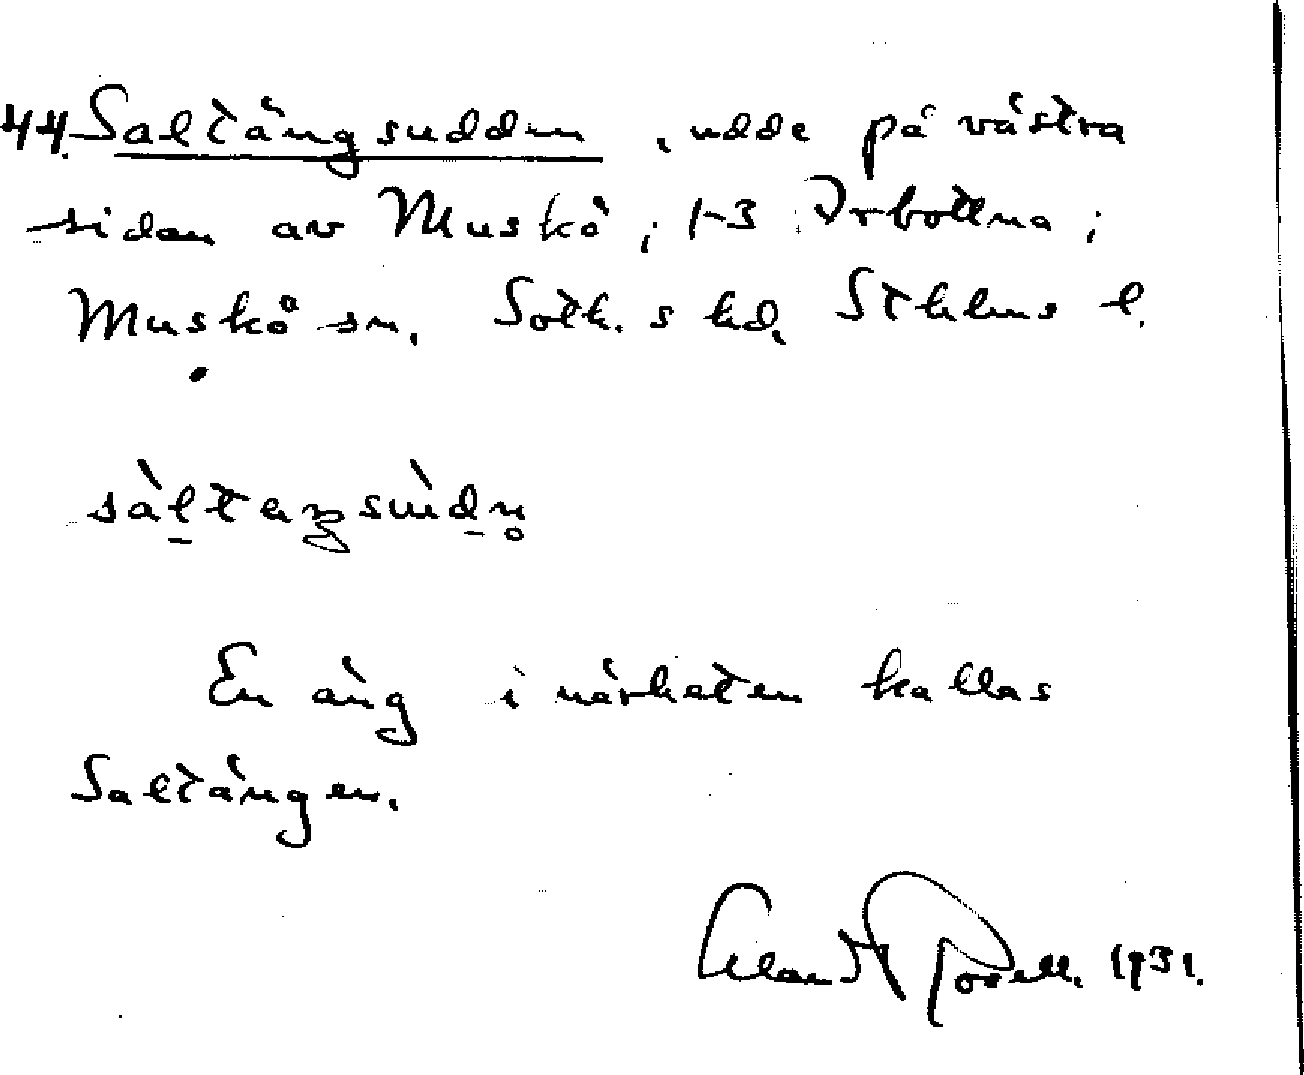 44. Saltängsudden, udde på västra
sidan av Muskö, 1-3 Yrbottna,
Muskö sn. Soth. s hd, Sthlms l.
sàltaŋsùdn̥
En äng i närheten kallas
Saltängen.
1931.